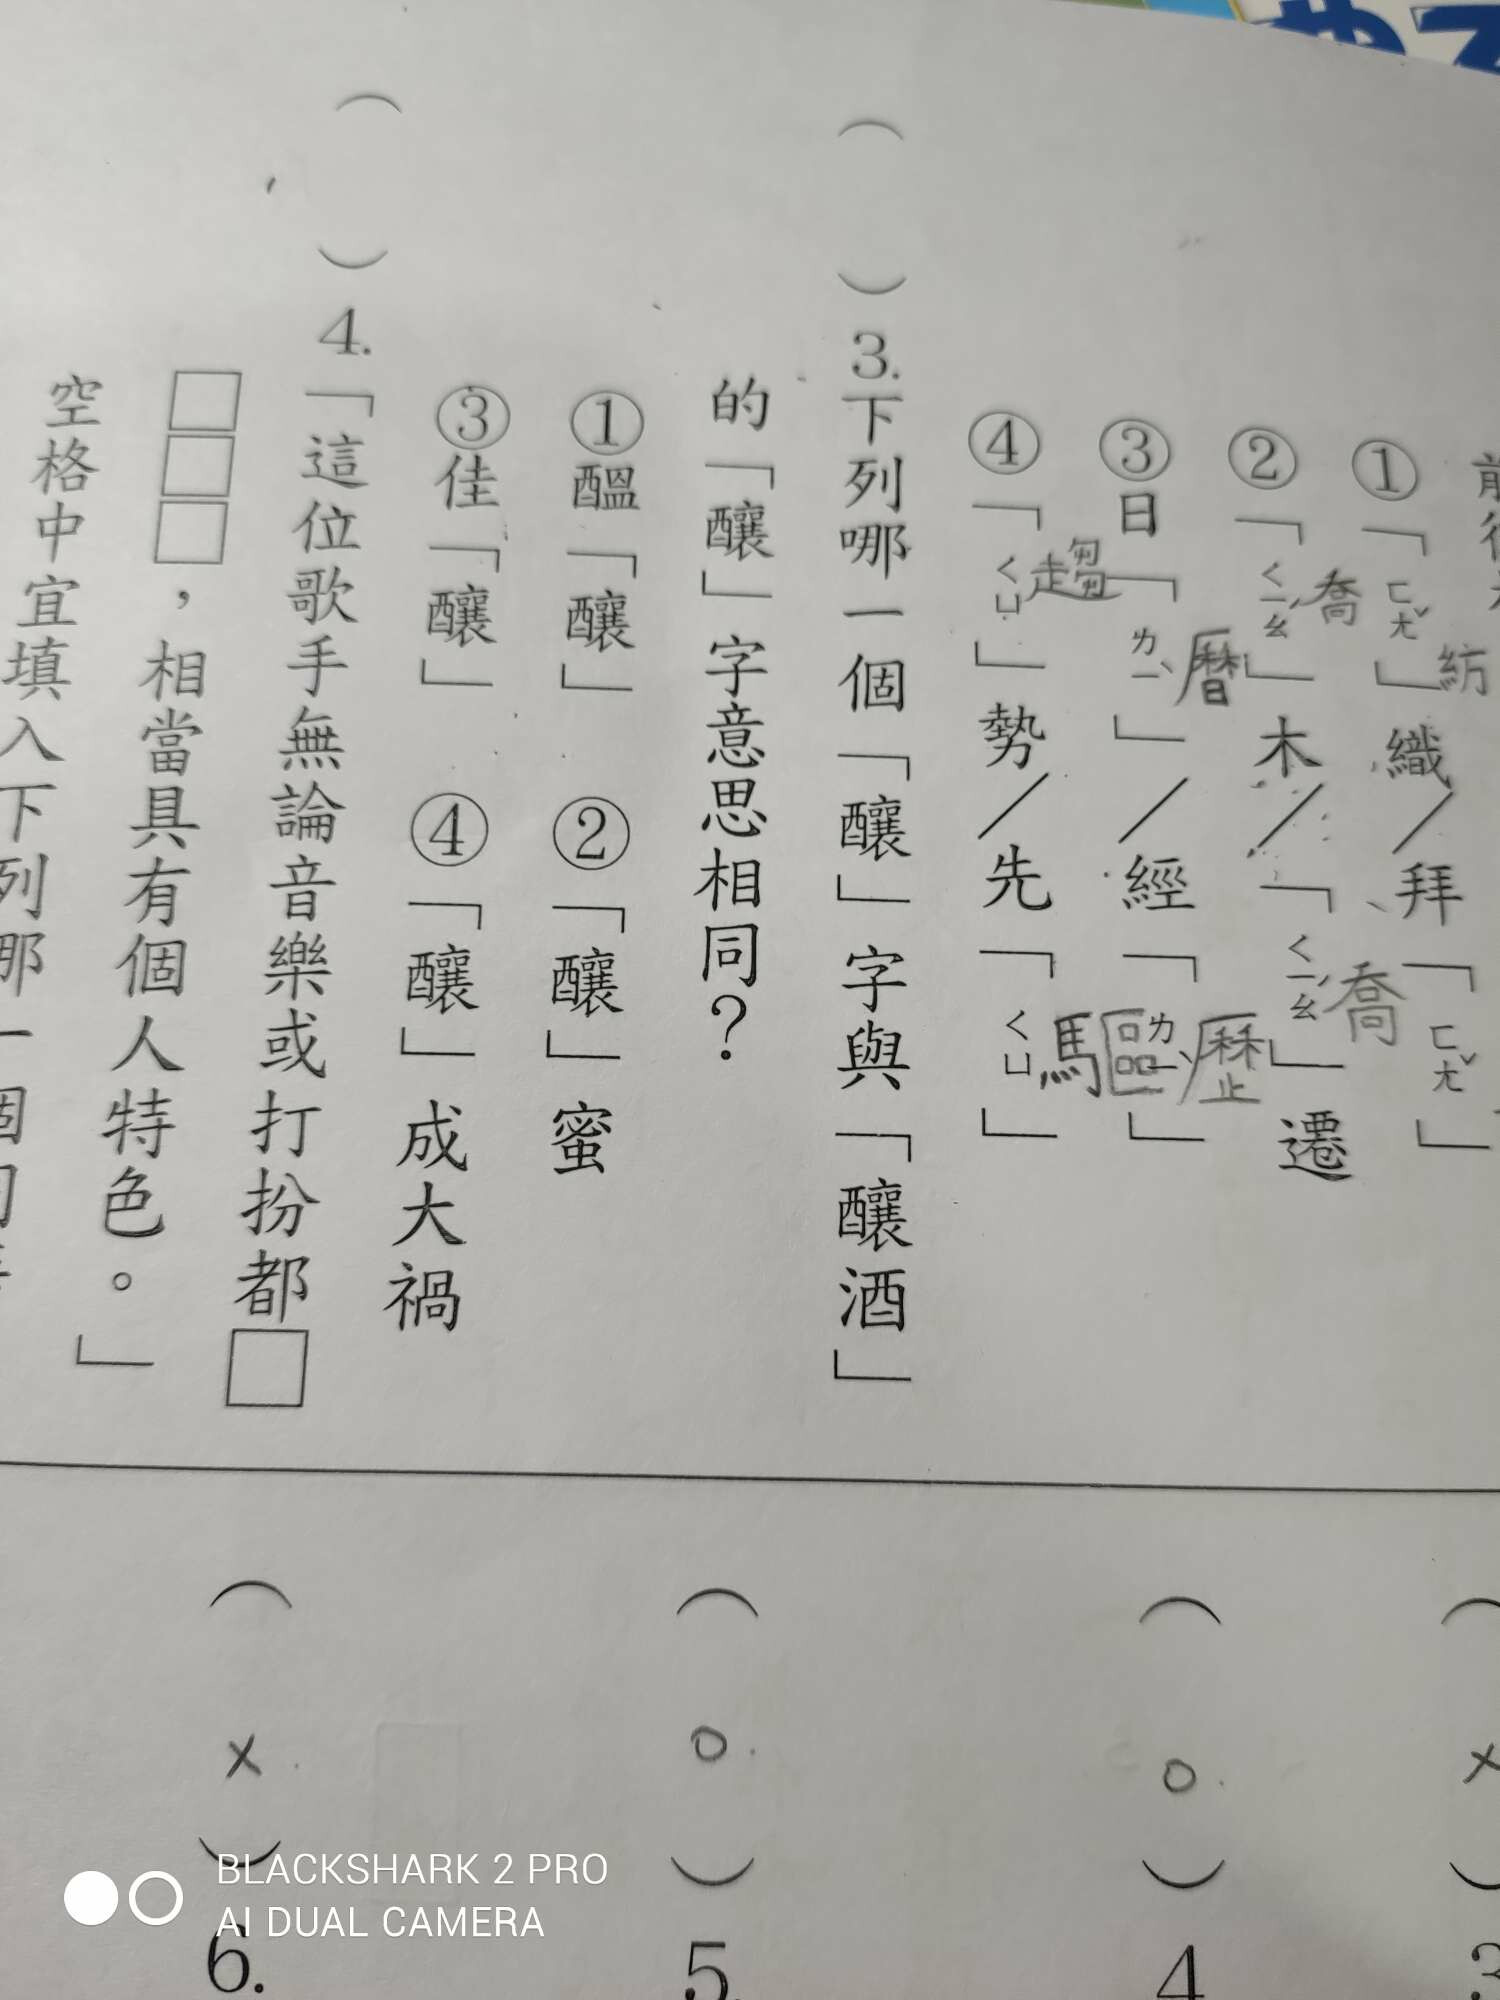 ①「ㄈㄤˇ」織／拜「ㄈㄤˇ」
紡
②「ㄑㄧㄠˊ」木／「ㄑㄧㄠˊ」遷
喬 喬
③日「ㄌㄧˋ」／經「ㄌㄧˋ」
曆 歷
④「ㄑㄩ」勢／先「ㄑㄩ」
趨 驅
（ ）3.下列哪一個「釀」字與「釀酒」
的「釀」字意思相同？
①醞「釀」 ②「釀」蜜
③佳「釀」 ④「釀」成大禍
（ ）4.「這位歌手無論音樂或打扮都□
□□□，相當具有個人特色。」
空格中宜填入下列哪一個
（×
（○）4
（○）5
（×）6.
BLACKSHARK 2 PRO
AI DUAL CAMERA